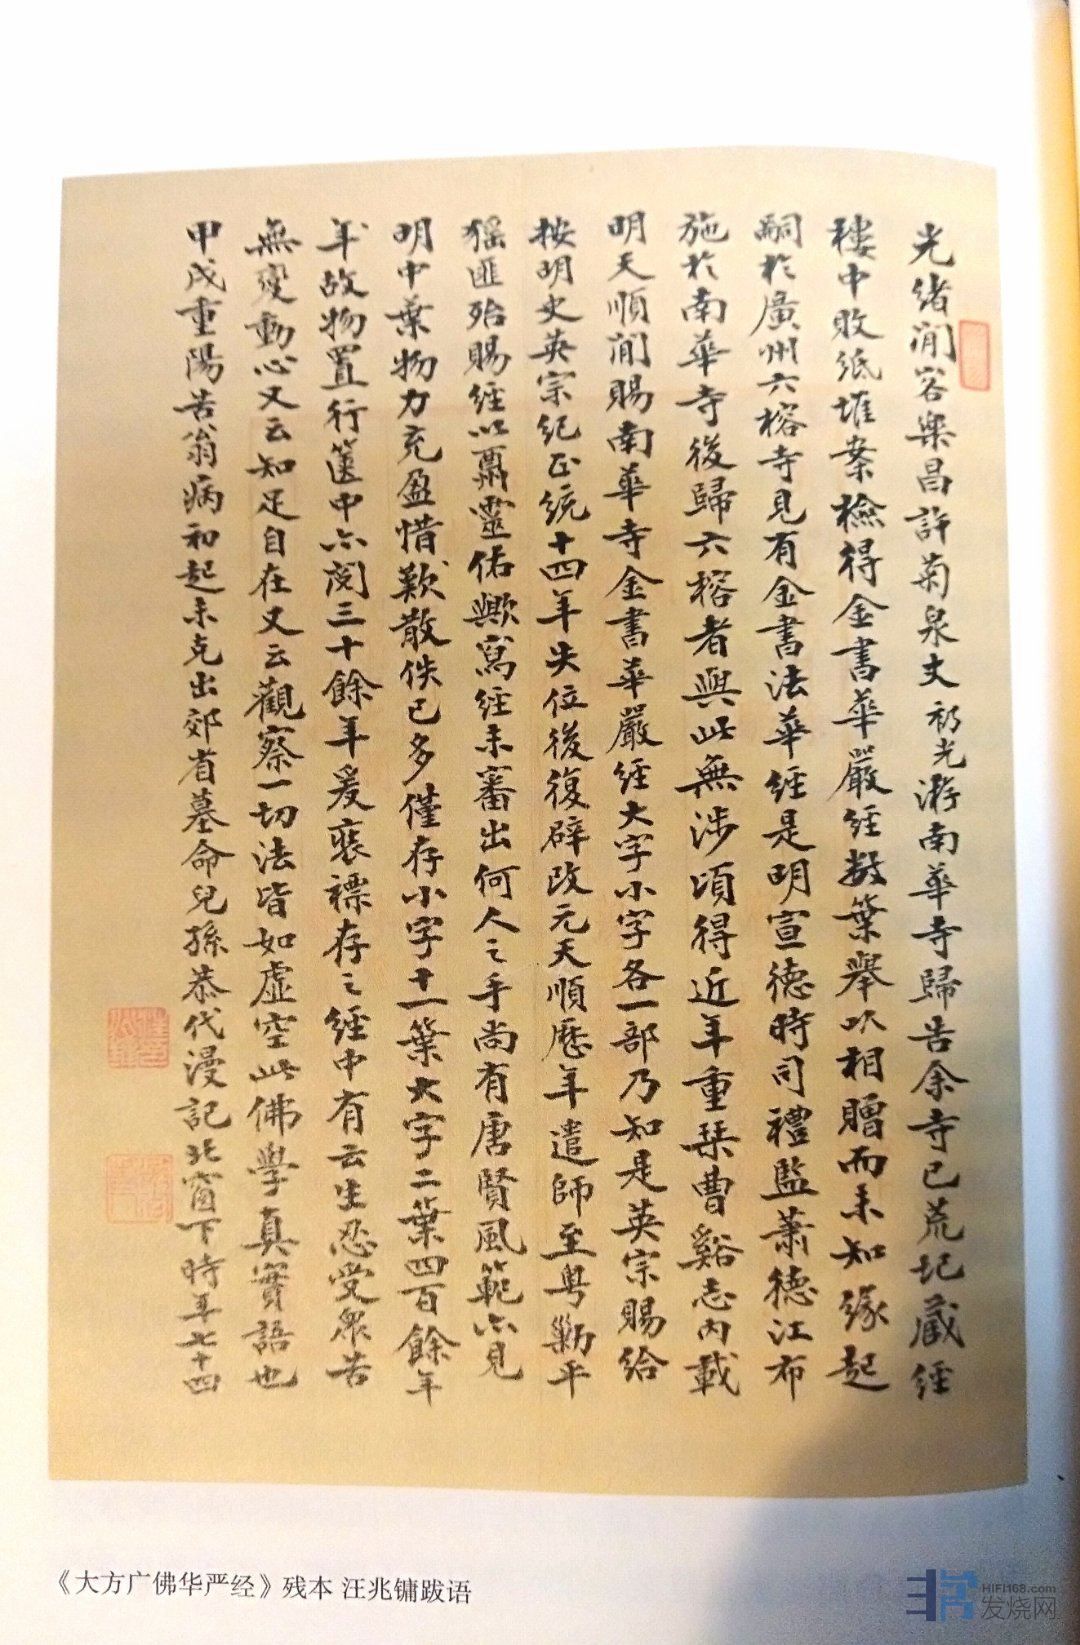 光緒間客樂昌許菊泉丈初光游南華寺歸告余寺已荒圮藏經
樓中敗紙堆案檢得金書華嚴經數葉舉以相贈而未知緣起
嗣於廣州六榕寺見有金書法華經是明宣德時司禮監蕭德江布
施於南華寺後歸六榕者與此無涉頃得近年重栞曹谿志內載
明天順間賜南華寺金書華嚴經大字小字各一部乃知是英宗賜給
按明史英宗紀正統十四年失位後復辟改元天順歷年遣師至粵勦平
猺匪殆賜經以肅靈佑歟寫經未審出何人之手尚有唐賢風範亦見
明中葉物力充盈惜歎散佚已多僅存小字十一葉大字二葉四百餘年
年故物置行篋中亦閱三十餘年爰裝褾存之經中有云生忍受眾苦
無變動心又云知足自在又云觀察一切法皆如虛空此佛學真實語也
甲戌重陽苦翁病初起未克出郊省墓命兒孫恭代漫記北窗下時年七十四
《大方广佛华严经》残本 汪兆镛跋语
HIFI168.com
发烧网